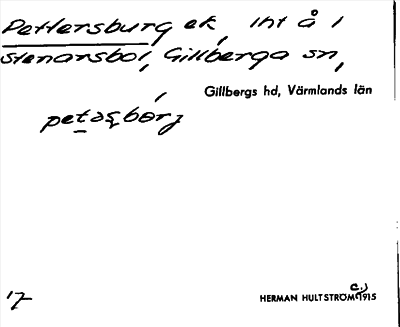 Pettersburg ek, int å i
Stenarsbol, Gillberga sn,
Gillbergs hd, Värmlands län
HERMAN HULTSTRÖM (C.) 1915